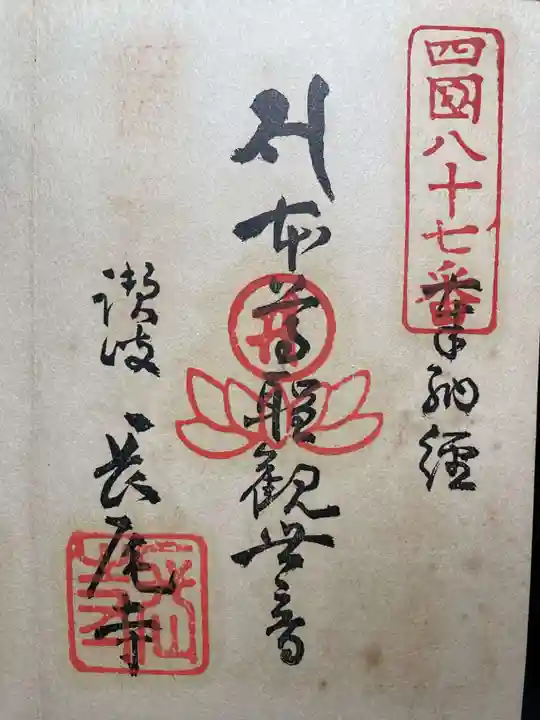 四國八十七番
奉納經
本尊聖観世音
讃岐
長尾寺